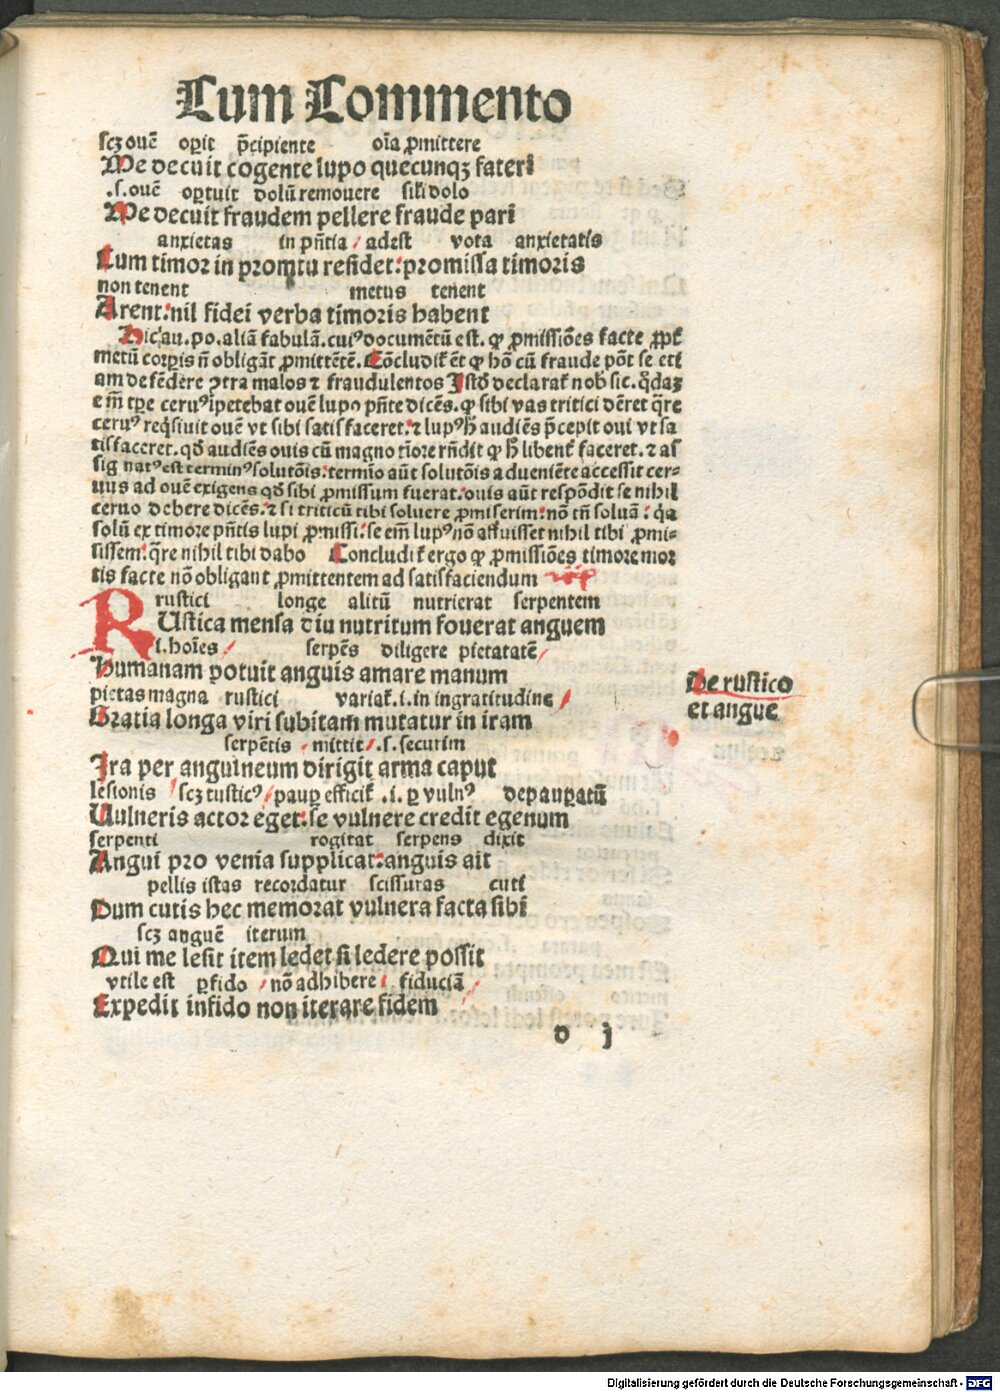 Cum Commento
scʒ ouē oꝑit p̄cipiente oīa ꝓmittere
Me decuit cogente lupo quecunqꝫ fateri
.s.ouē oꝑtuit dolū remouere sili dolo
Me decuit fraudem pellere fraude pari
anxietas in pn̄tia / adest vota anxietatis
Cum timor in promtu residet: promissa timoris
non tenent metus tenent
Arent: nil fidei verba timoris habent
Hic au. po. aliā fabulā. cuiꝰ documētū est. ꝙ ꝓmissiōes facte ꝓpt̄
metū corꝑis n̄ obligāt ꝓmittētē. Cōcludit̄ ēt ꝙ hō cū fraude pōt se eti
am defēdere ꝯtra malos ⁊ fraudulentos Istd̄ declarat̄ nob̄ sic. q̄daʒ
em̄ tꝑe ceruꝰ īpetebat ouē lupo pn̄te dicēs. ꝙ sibi vas tritici dēret q̄re
ceruꝰ req̄siuit ouē vt sibi satisfaceret. ⁊ lupꝰ h̄ audiēs p̄cepit oui vt sa
tisfaceret. qd̄ audiēs ouis cū magno tīore rn̄dit ꝙ h̄ libent̄ faceret. ⁊ as
signatꝰ est terminꝰ solutōis: termīo aūt solutōis adueniēte accessit cer-
uus ad ouē exigens qd̄ sibi ꝓmissum fuerat: ouis aūt respōdit se nihil
ceruo debere dicēs. ⁊ si triticū tibi soluere ꝓmiserim: nō tn̄ soluā: q̄a
solū ex timore pn̄tis lupi ꝓmissi: se em̄ lupꝰ nō affuisset nihil tibi ꝓmi-
sissem: q̄re nihil tibi dabo Concludit̄ ergo ꝙ ꝓmissiōes timore mor
tis facte nō obligant ꝓmittentem ad satisfaciendum
rustici longe alitū nutrierat serpentem
RUstica mensa diu nutritum fouerat anguem
i. hoīes / serpēs diligere pietatatē /
Humanam potuit anguis amare manum
pietas magna rustici variat̄ .i. in ingratitudinē /
Gratia longa viri subitam mutatur in iram
serpētis mittit / .s. securim
Ira per anguineum dirigit arma caput
lesionis / scʒ rusticꝰ / pauꝑ efficit̄ .i. ꝑ vulnꝰ depauꝑatū
Uulneris actor eget: se vulnere credit egenum
serpenti rogitat serpens dixit
Angui pro venia supplicat: anguis ait
pellis istas recordatur scissuras cuti
Dum cutis hec memorat vulnera facta sibi
scʒ anguē iterum
Qui me lesit item ledet si ledere possit
vtile est ꝑfido / nō adhibere / fiduciā /
Expedit infido non iterare fidem
De rustico
et angue
d j
Digitalisierung gefördert durch die Deutsche Forschungsgemeinschaft - DFG